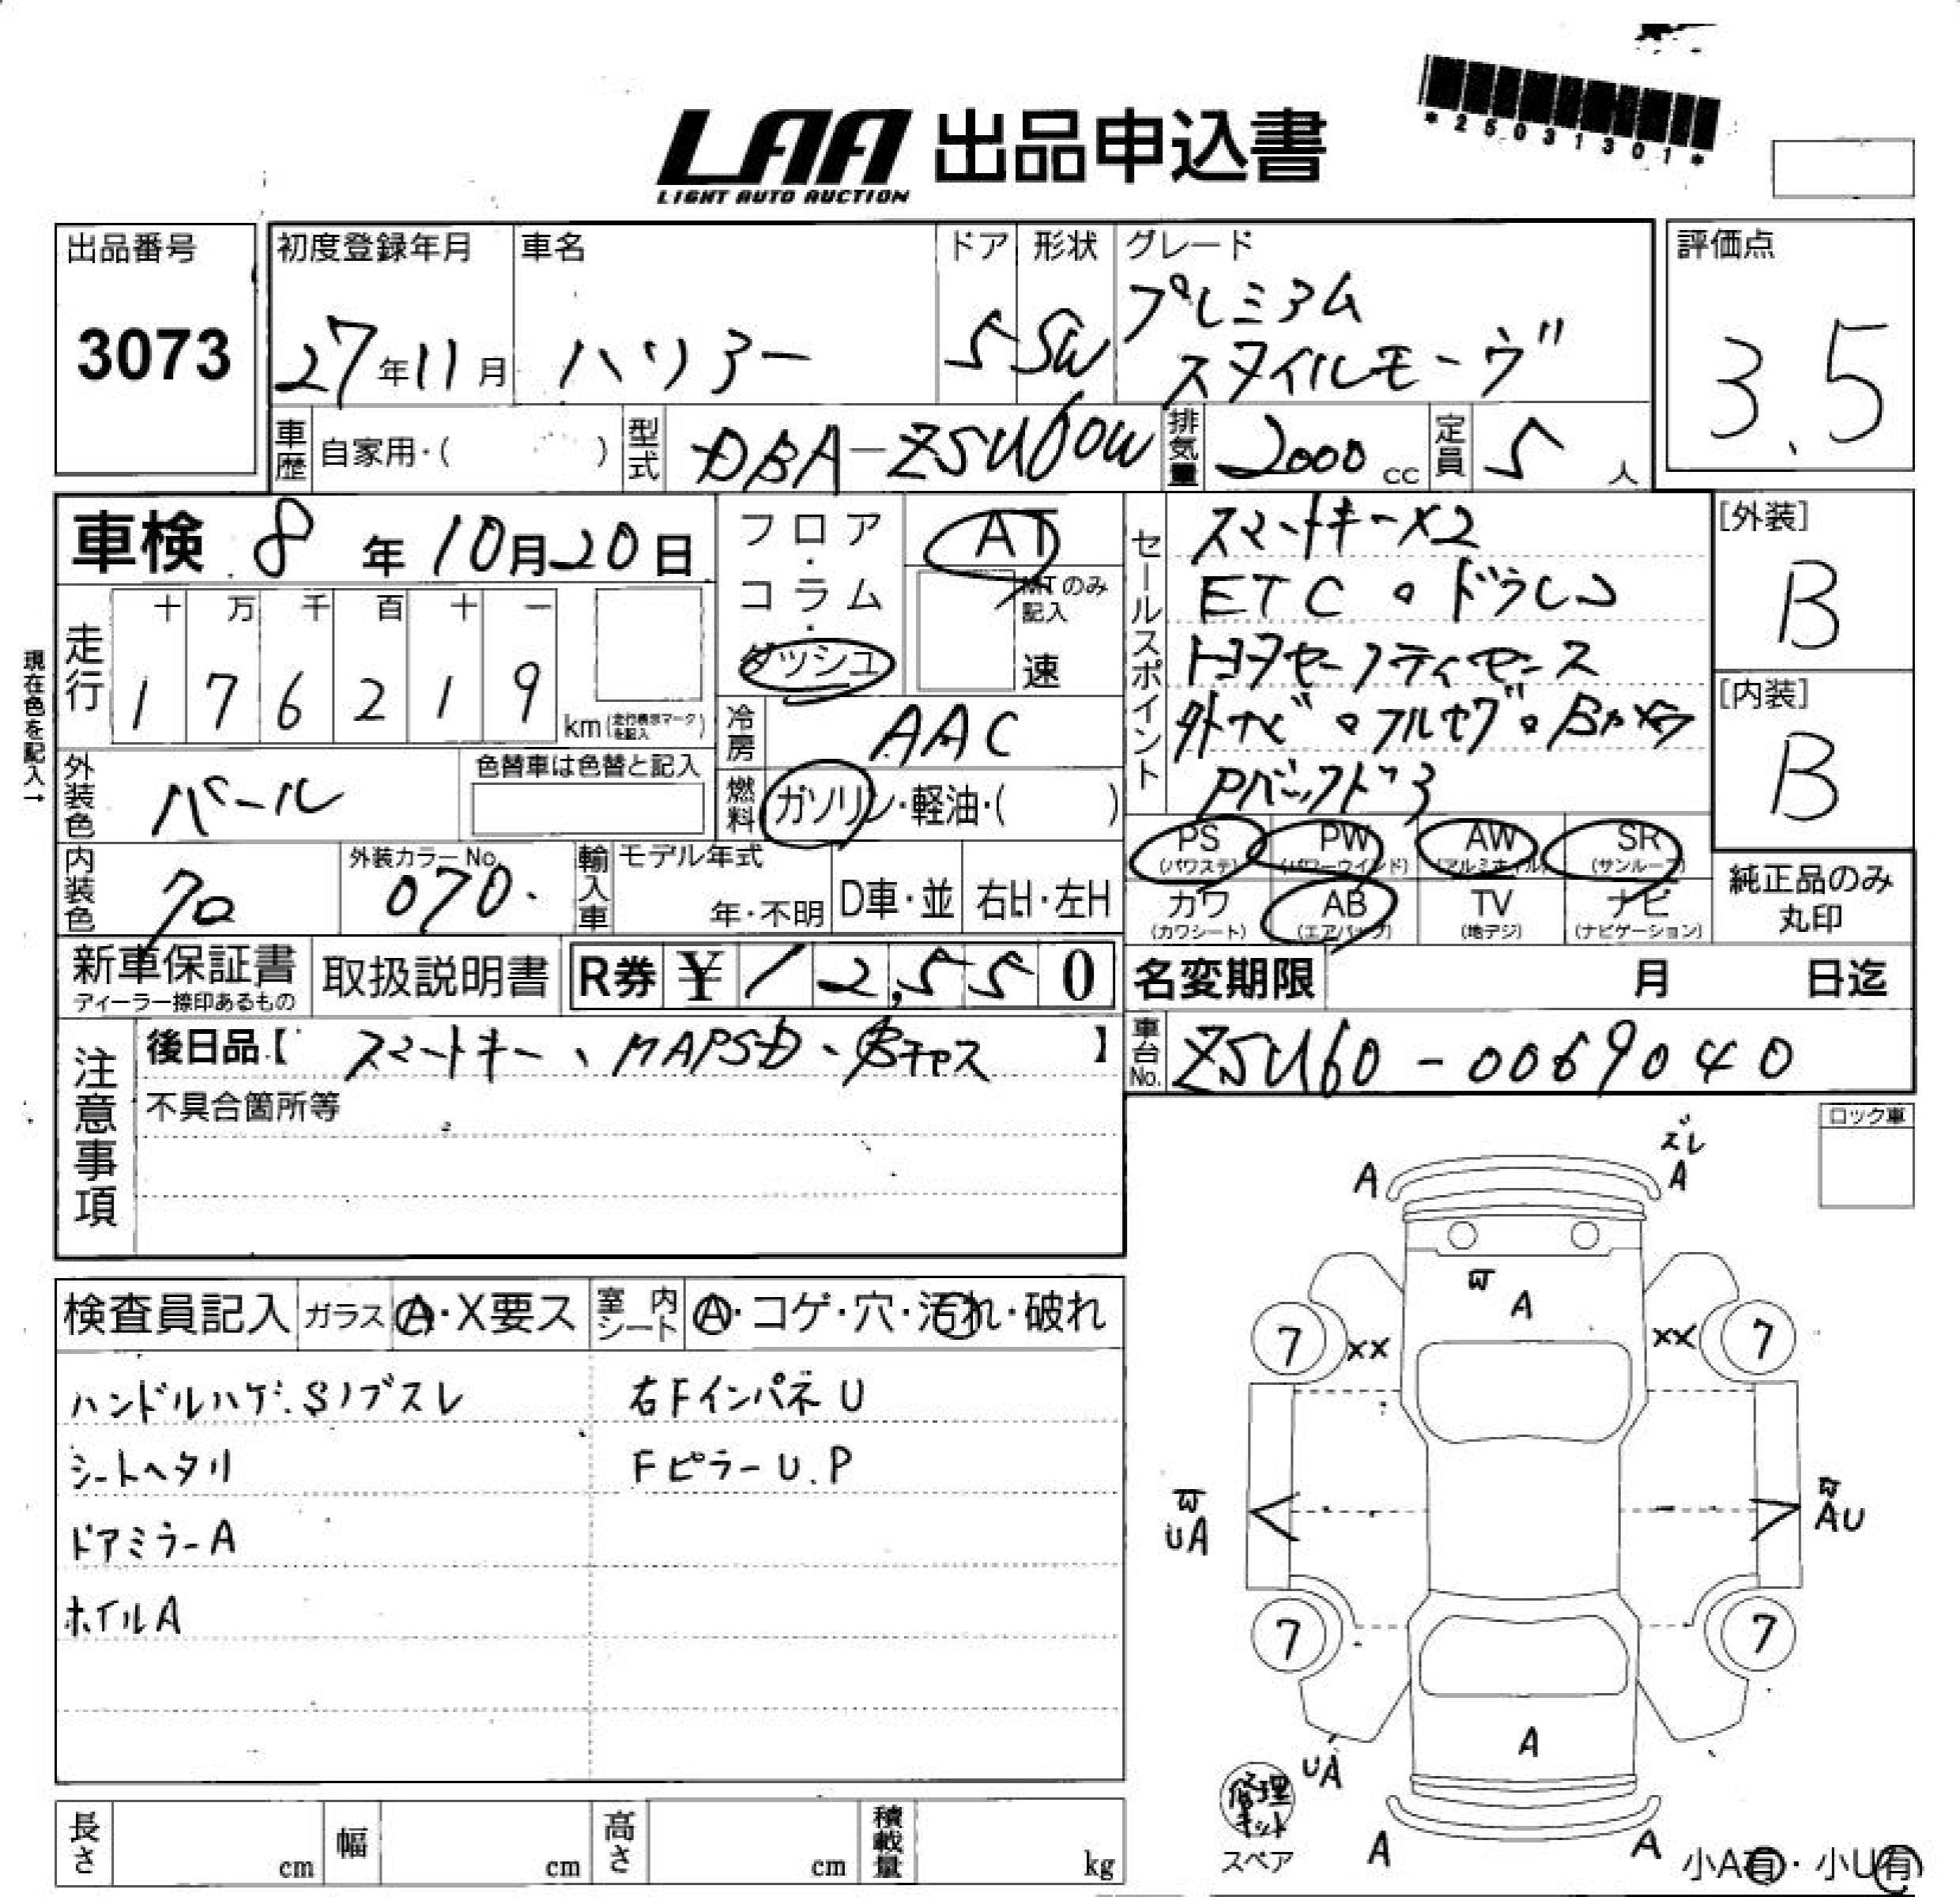 LAA 出品申込書
LIGHT AUTO AUCTION
*25031301*
出品番号
3073
初度登録年月
27年11月
車名
ハリアー
ドア
5
形状
SW
グレード
プレミアム
スタイルモーヴ
評価点
3.5
車歴
自家用・( )
型式
DBA-ZSU60W
排気量
2000cc
定員
5人
車検 8年10月20日
フロア・コラム・ダッシュ
AT
MTのみ記入
速
セールスポイント
スマートキーX2
ETC。ドラレコ
トヨタセーフティセンス
外ナビ。フルセグ。Bカメラ
Pバックドア
[外装]
B
[内装]
B
現在色を記入→
走行
十万千百十一
176219
km(走行表示マークを記入)
冷房
AAC
外装色
パール
色替車は色替と記入
燃料
ガソリン・軽油・( )
内装色
クロ
外装カラーNo.
070.
輸入車
モデル年式
年・不明
D車・並
右H・左H
PS (パワステ)
PW (パワーウインド)
AW (アルミホイル)
SR (サンルーフ)
カワ (カワシート)
AB (エアバック)
TV (地デジ)
ナビ (ナビゲーション)
純正品のみ
丸印
新車保証書
ディーラー捺印あるもの
取扱説明書
R券 ¥12,550
名変期限 月 日迄
注意事項
後日品【スマートキー、MAPSD、 】
不具合箇所等
車台No.
ZSU60-0069040
ロック車
検査員記入
ガラス A・X要ス
室内シート A・コゲ・穴・汚れ・破れ
ハンドルハゲ.Sノブスレ
シートヘタリ
ドアミラーA
ホイルA
右FインパネU
FピラーU.P
ズレ
A
A
W
A
7
XX
XX
7
W
UA
W
AU
7
7
A
UA
修理キット
スペア
A
A
小A有・小U有
長さ cm
幅 cm
高さ cm
積載量 kg